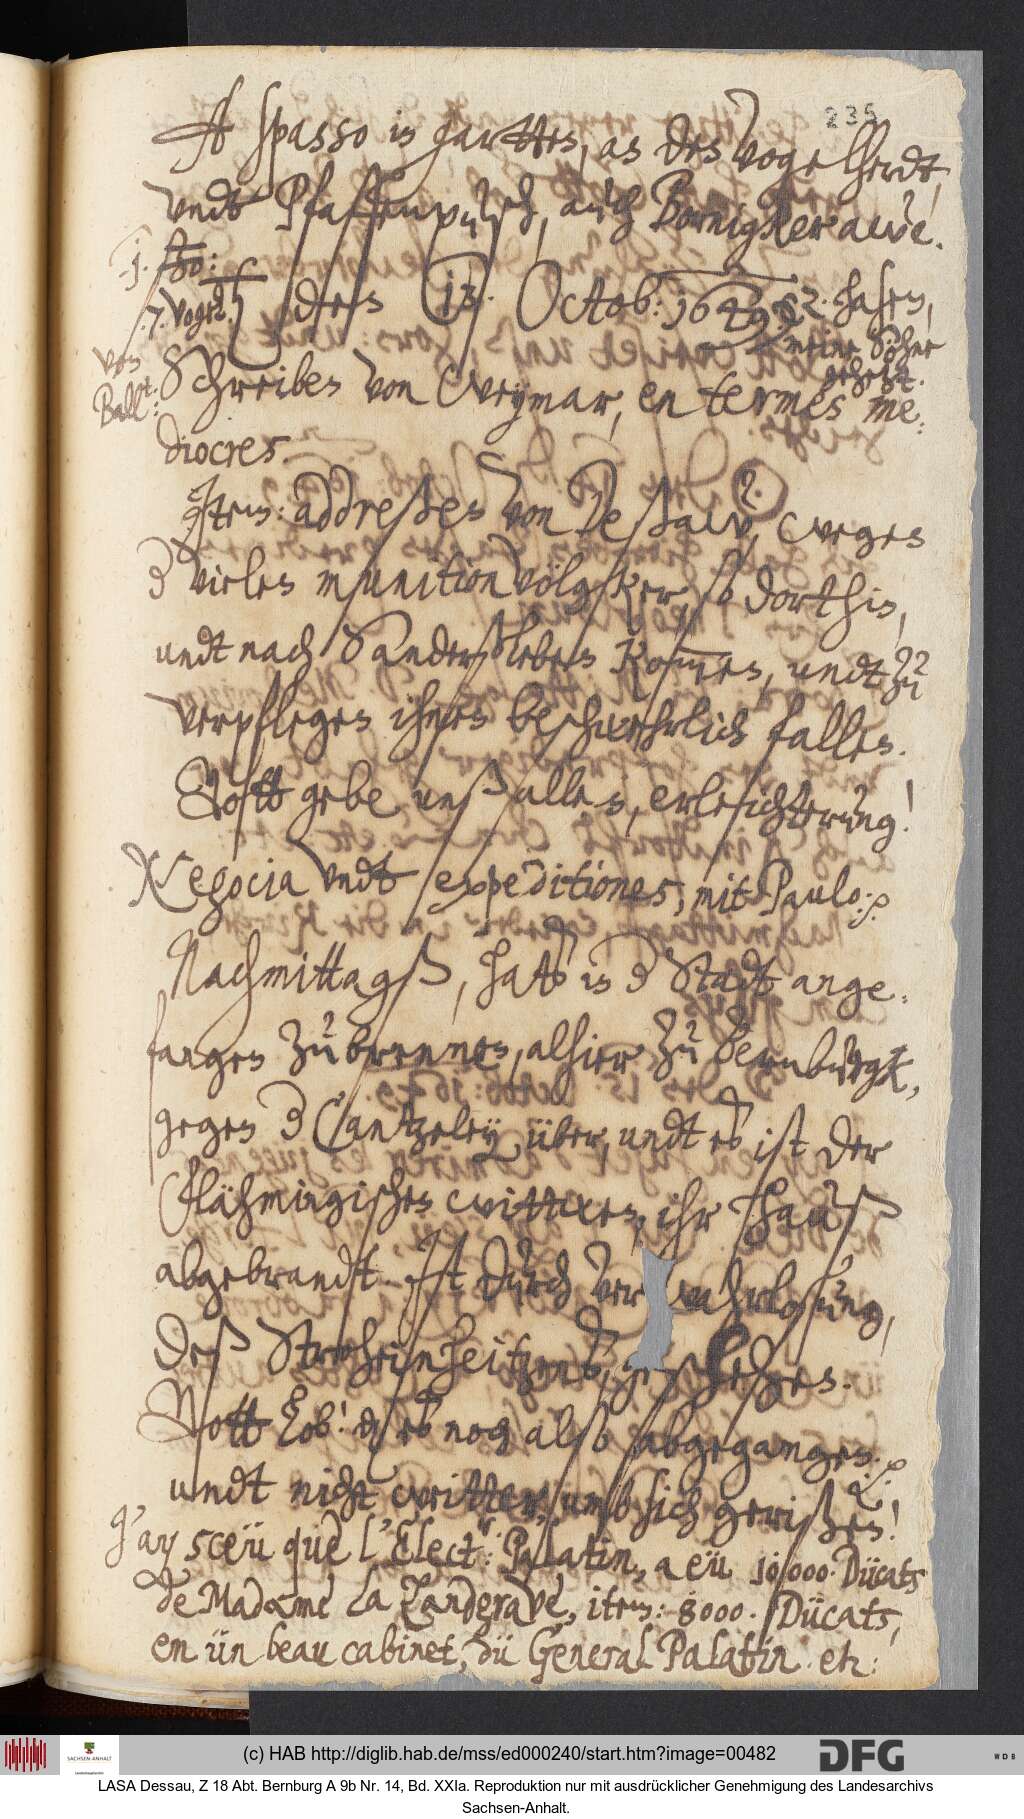 235
A spasso in gartten, an den Vogelherdt,
undt Pfaffenpusch, auch Börnigker awe.
1. 
7. Vogel
♄ den 13. Octob: 1649. 2. hasen,
meine Söhne
gehezt.
von
Ballt:
Schreiben von Weymar, en termes me:
diocres
Item: addreßen von Deßaw, wegen
d vielen munitionvölgker, so dorthin,
undt nach Sanderßleben kommen, undt zu
verpflegen ihnen beschwehrlich fallen.
Gott gebe unß allen, erleichterung!
Negocia undt expeditiones, mit Paulo: p
Nachmittagß, hatts in d Stadt ange:
fangen zu brennen, alhier zu Bernburgk,
gegen d Cantzeley über, undt es ist der
Flähmingischen wittwen, ihr hauß
abgebrandt. Ist durch verwahrlosung,
deß Stroheinheitzens, geschehen.
Gott Lob! daß es noch also abgegangen p
undt nicht weitter, umb sich gerißen!
J'ay sceü que l'Elect: Palatin, a eü 10000 Dücats
de Madame la Landgrave, item: 8000. Dücats,
en ün beau cabinet, dü General Palatin etc:
(c) HAB http://diglib.hab.de/mss/ed000240/start.htm?image=00482
DFG
WDB
SACHSEN-ANHALT
LASA Dessau, Z 18 Abt. Bernburg A 9b Nr. 14, Bd. XXIa. Reproduktion nur mit ausdrücklicher Genehmigung des Landesarchivs
Sachsen-Anhalt.